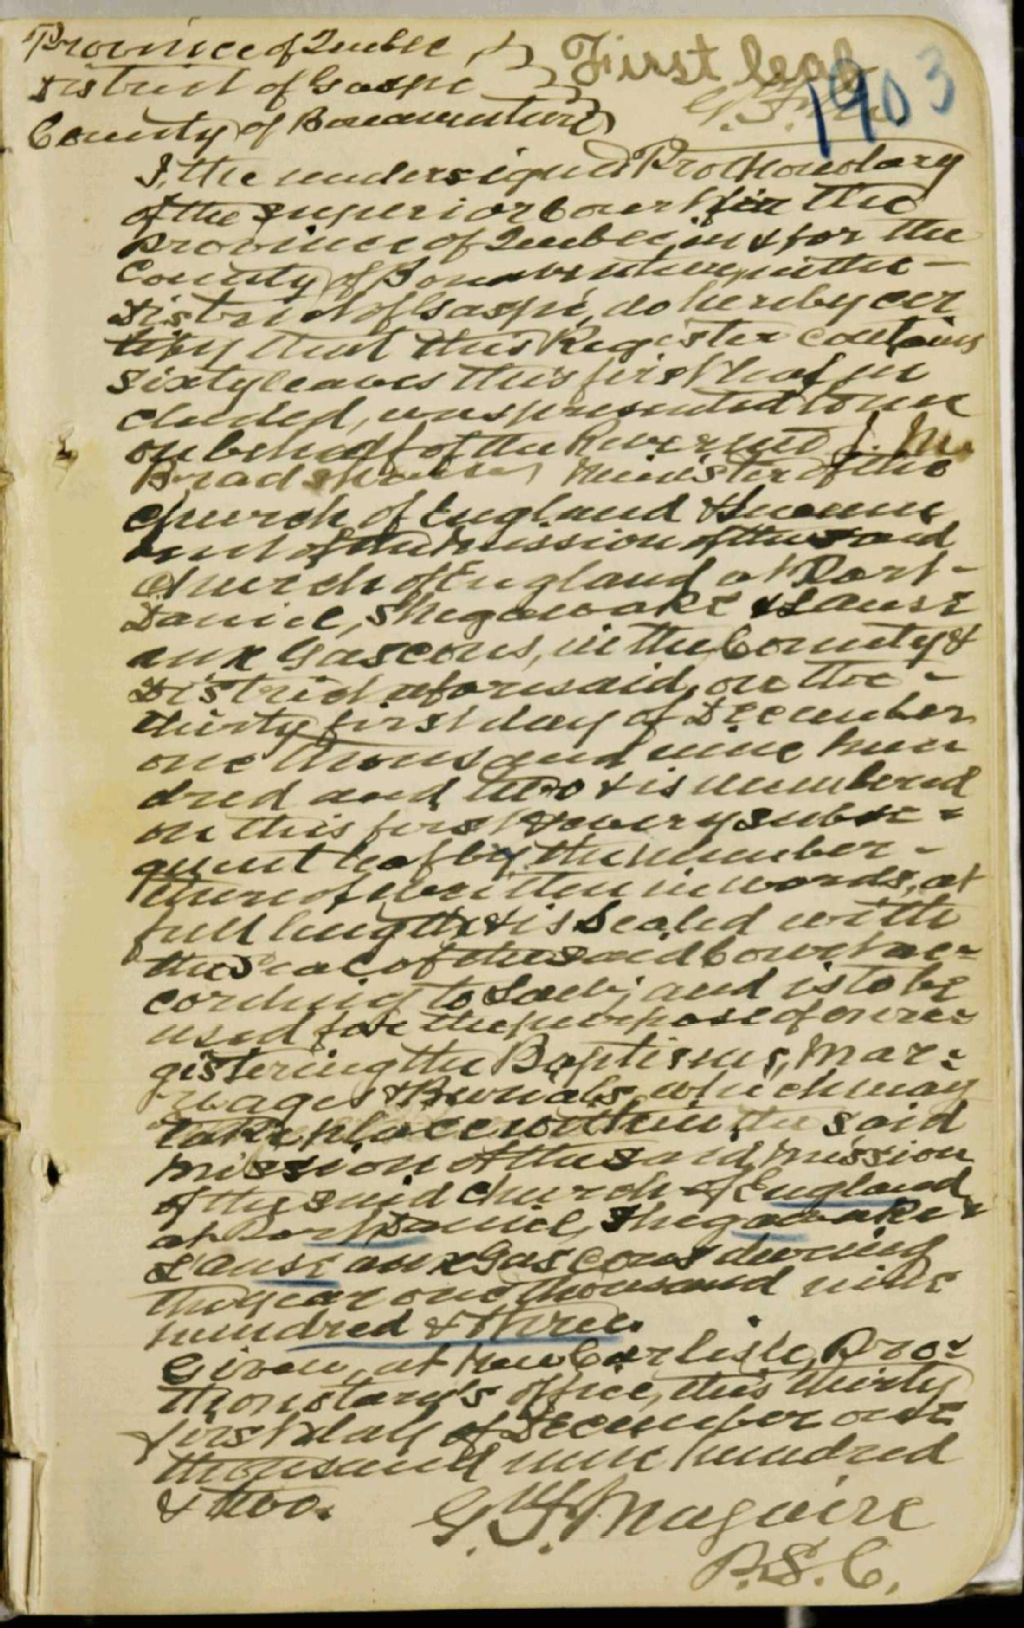 Province of Quebec
District of Gaspe
County of Bonaventure
First leaf
1903
I, the undersigned Prothonotary
of the Superior Court for the
Province of Quebec, in & for the
County of Bonaventure, in the -
District of Gaspé, do hereby cer
tify that this Register contains
sixty leaves this first leaf in
cluded, was presented to me
on behalf of the Reverend J. M.
Minister of the
Church of England & Incum
bent of the Mission of the said
Church of England at Port -
Daniel, Shigawake & L'anse
aux Gascons, in the County &
District aforesaid, on the -
thirty first day of December
one thousand nine hun
dred and two & is numbered
on this first & every subse =
quent leaf by the number -
thereof written in words, at
full length & is sealed with
the seal of the said Court ac-
cording to Law; and is to be
used for the purpose of re=
gistering the Baptisms, Mar=
riages & Burials, which may
take place within the said
Mission of the said Mission
of the said Church of England
at Port Daniel, Shigawake &
L'anse aux Gascons during
the year one thousand nine
hundred & three.
Given, at New Carlisle, Pro=
thonotary's office, this thirty
first day of December one
thousand nine hundred
& two.
G. F. Maguire
P.S.C.